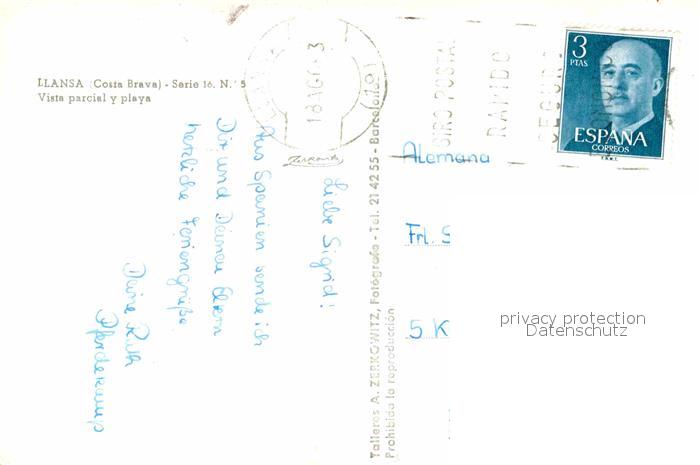 LLANSA (Costa Brava) - Serie 16. N.° 5
Vista parcial y playa
Liebe Sigrid!
Aus Spanien sende ich
Dir und Deinen Eltern
herzliche Feriengrüße
Deine Ruth
Talleres A. ZERKOWITZ, Fotógrafo - Tel. 21 42 55 - Barcelona
Prohibida la reproducción
ZERKOWITZ
18 AGO
GIRO POSTAL
RAPIDO
SEGURO
3
PTAS
ESPAÑA
CORREOS
F.N.M.T.
CORREO
Alemana
Frl. S
5 K
privacy protection
Datenschutz